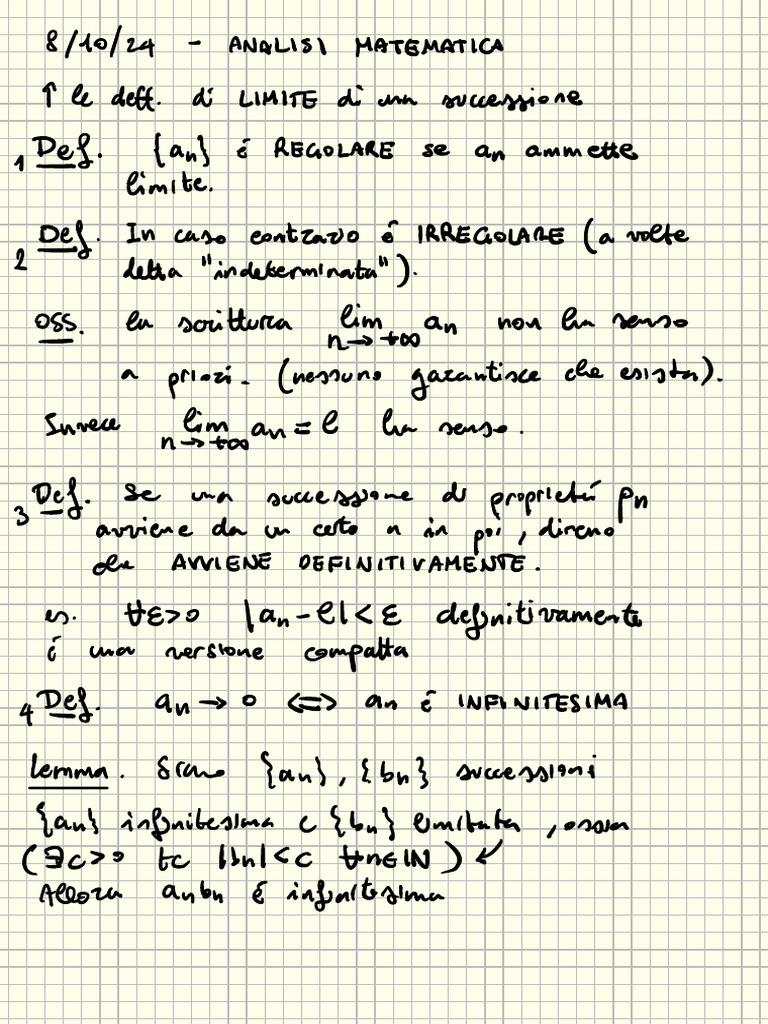 8/10/24 - ANALISI MATEMATICA
↑ le deff. di LIMITE di una successione
1 Def. {an} é REGOLARE se an ammette
limite.
2 Def. In caso contrario é IRREGOLARE (a volte
detta "indeterminata").
OSS. la scrittura lim an non ha senso
n→+∞
a priori. (nessuno garantisce che esista).
Invece lim an = l ha senso.
n→+∞
3 Def. Se una successione di proprietá pn
avviene da un certo n in poi, diremo
che AVVIENE DEFINITIVAMENTE.
es. ∀ε>0 |an-l|<ε definitivamente
é una versione compatta
4 Def. an → 0 <=> an é INFINITESIMA
Lemma. Siano {an}, {bn} successioni
{an} infinitesima e {bn} limitata, ossia
(∃c>0 tc |bn|<c ∀n∈IN) ↙
Allora anbn é infinitesima